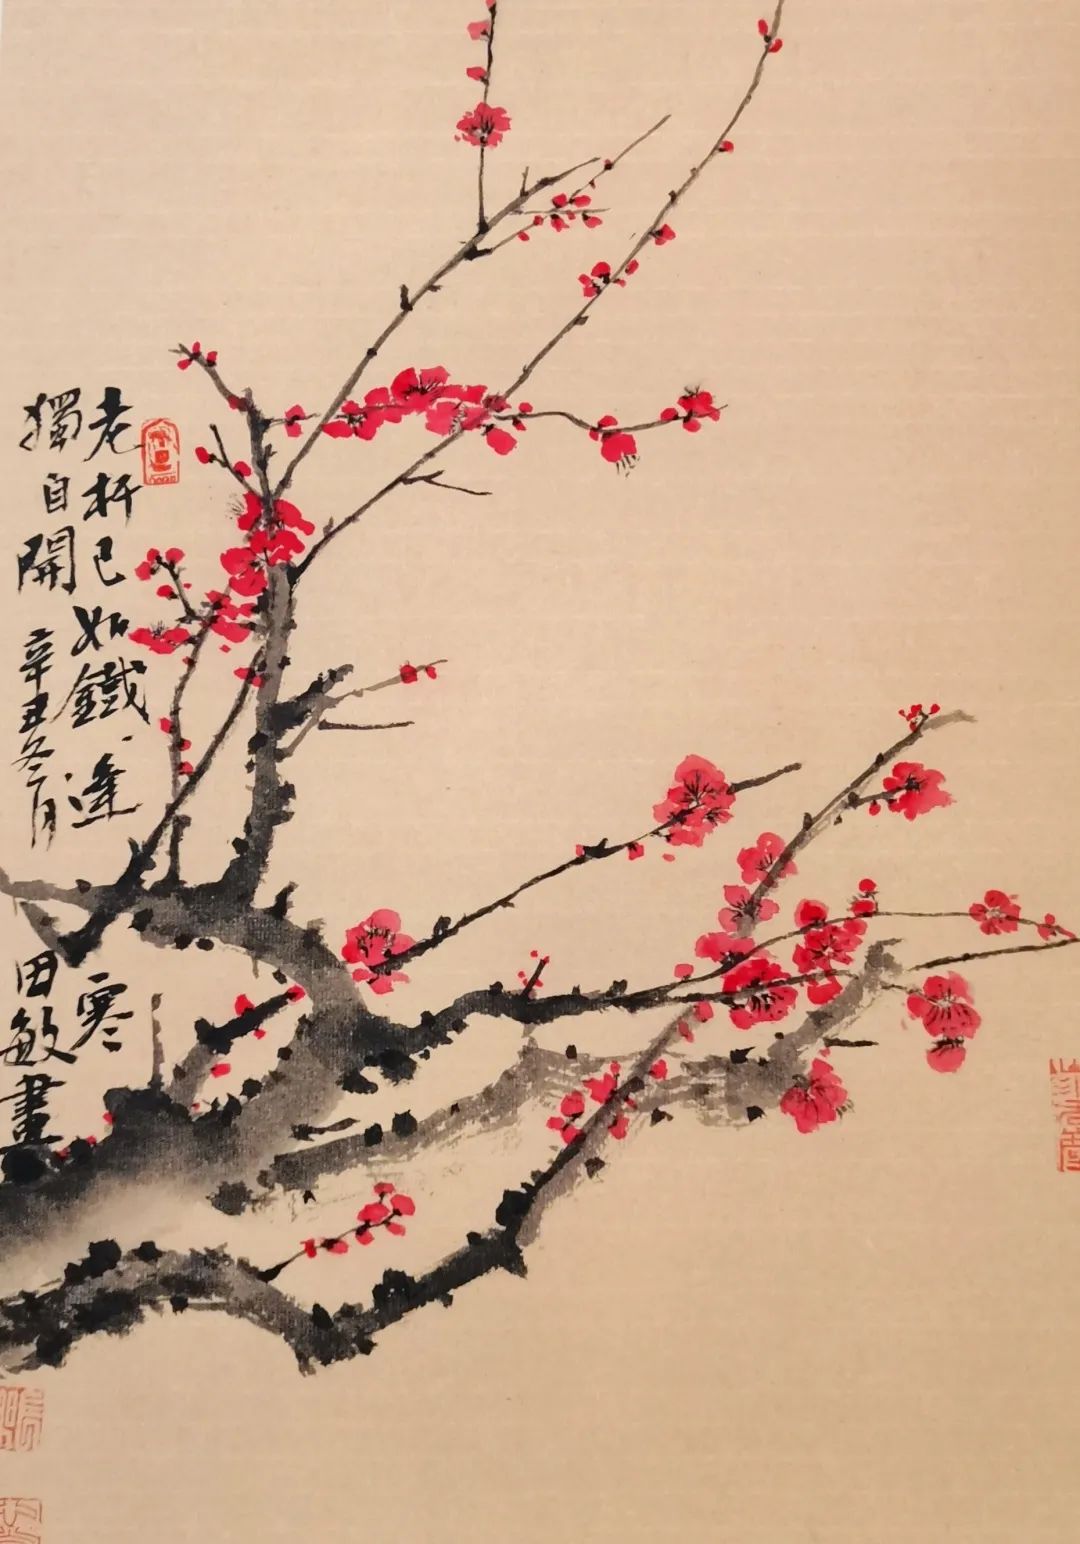 老杆已如鐵逢寒
獨自開 辛丑冬月 田敏畫